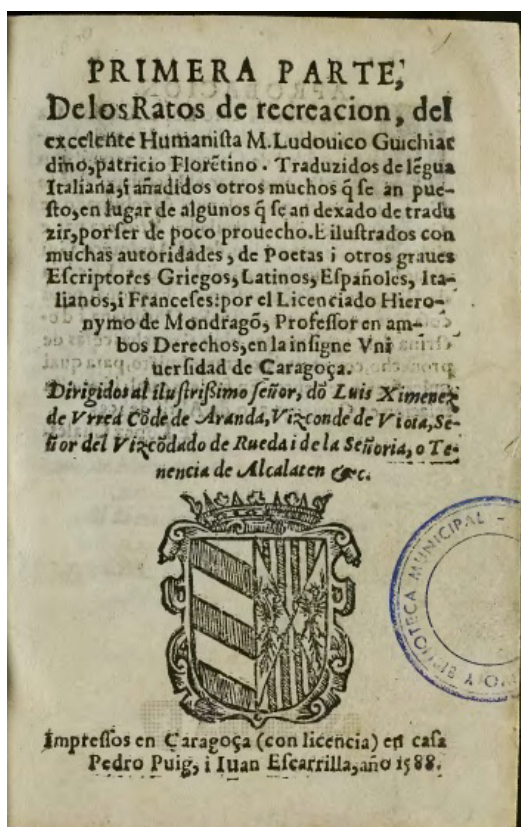 PRIMERA PARTE,
De los Ratos de recreacion, del
excelẽte Humanista M. Ludouico Guichiar
dino, patricio Florẽtino. Traduzidos de lẽgua
Italiana, i añadidos otros muchos q̃ se an pue-
sto, en lugar de algunos q̃ se an dexado de tradu
zir, por ser de poco prouecho. E ilustrados con
muchas autoridades, de Poetas i otros graues
Escriptores Griegos, Latinos, Españoles, Ita-
lianos, i Franceses: por el Licenciado Hiero-
nymo de Mondragõ, Professor en am-
bos Derechos, en la insigne Vni
uersidad de Caragoça.
Dirigidos al ilustrißimo señor, dõ Luis Ximenez
de Vrrea Cõde de Aranda, Vizconde de Viota, Se-
ñor del Vizcõdado de Rueda i de la Señoria, o Te-
nencia de Alcalaten &c.
BIBLIOTECA MUNICIPAL -
Impressos en Caragoça (con licencia) en casa
Pedro Puig, i Iuan Escarrilla, año 1588.